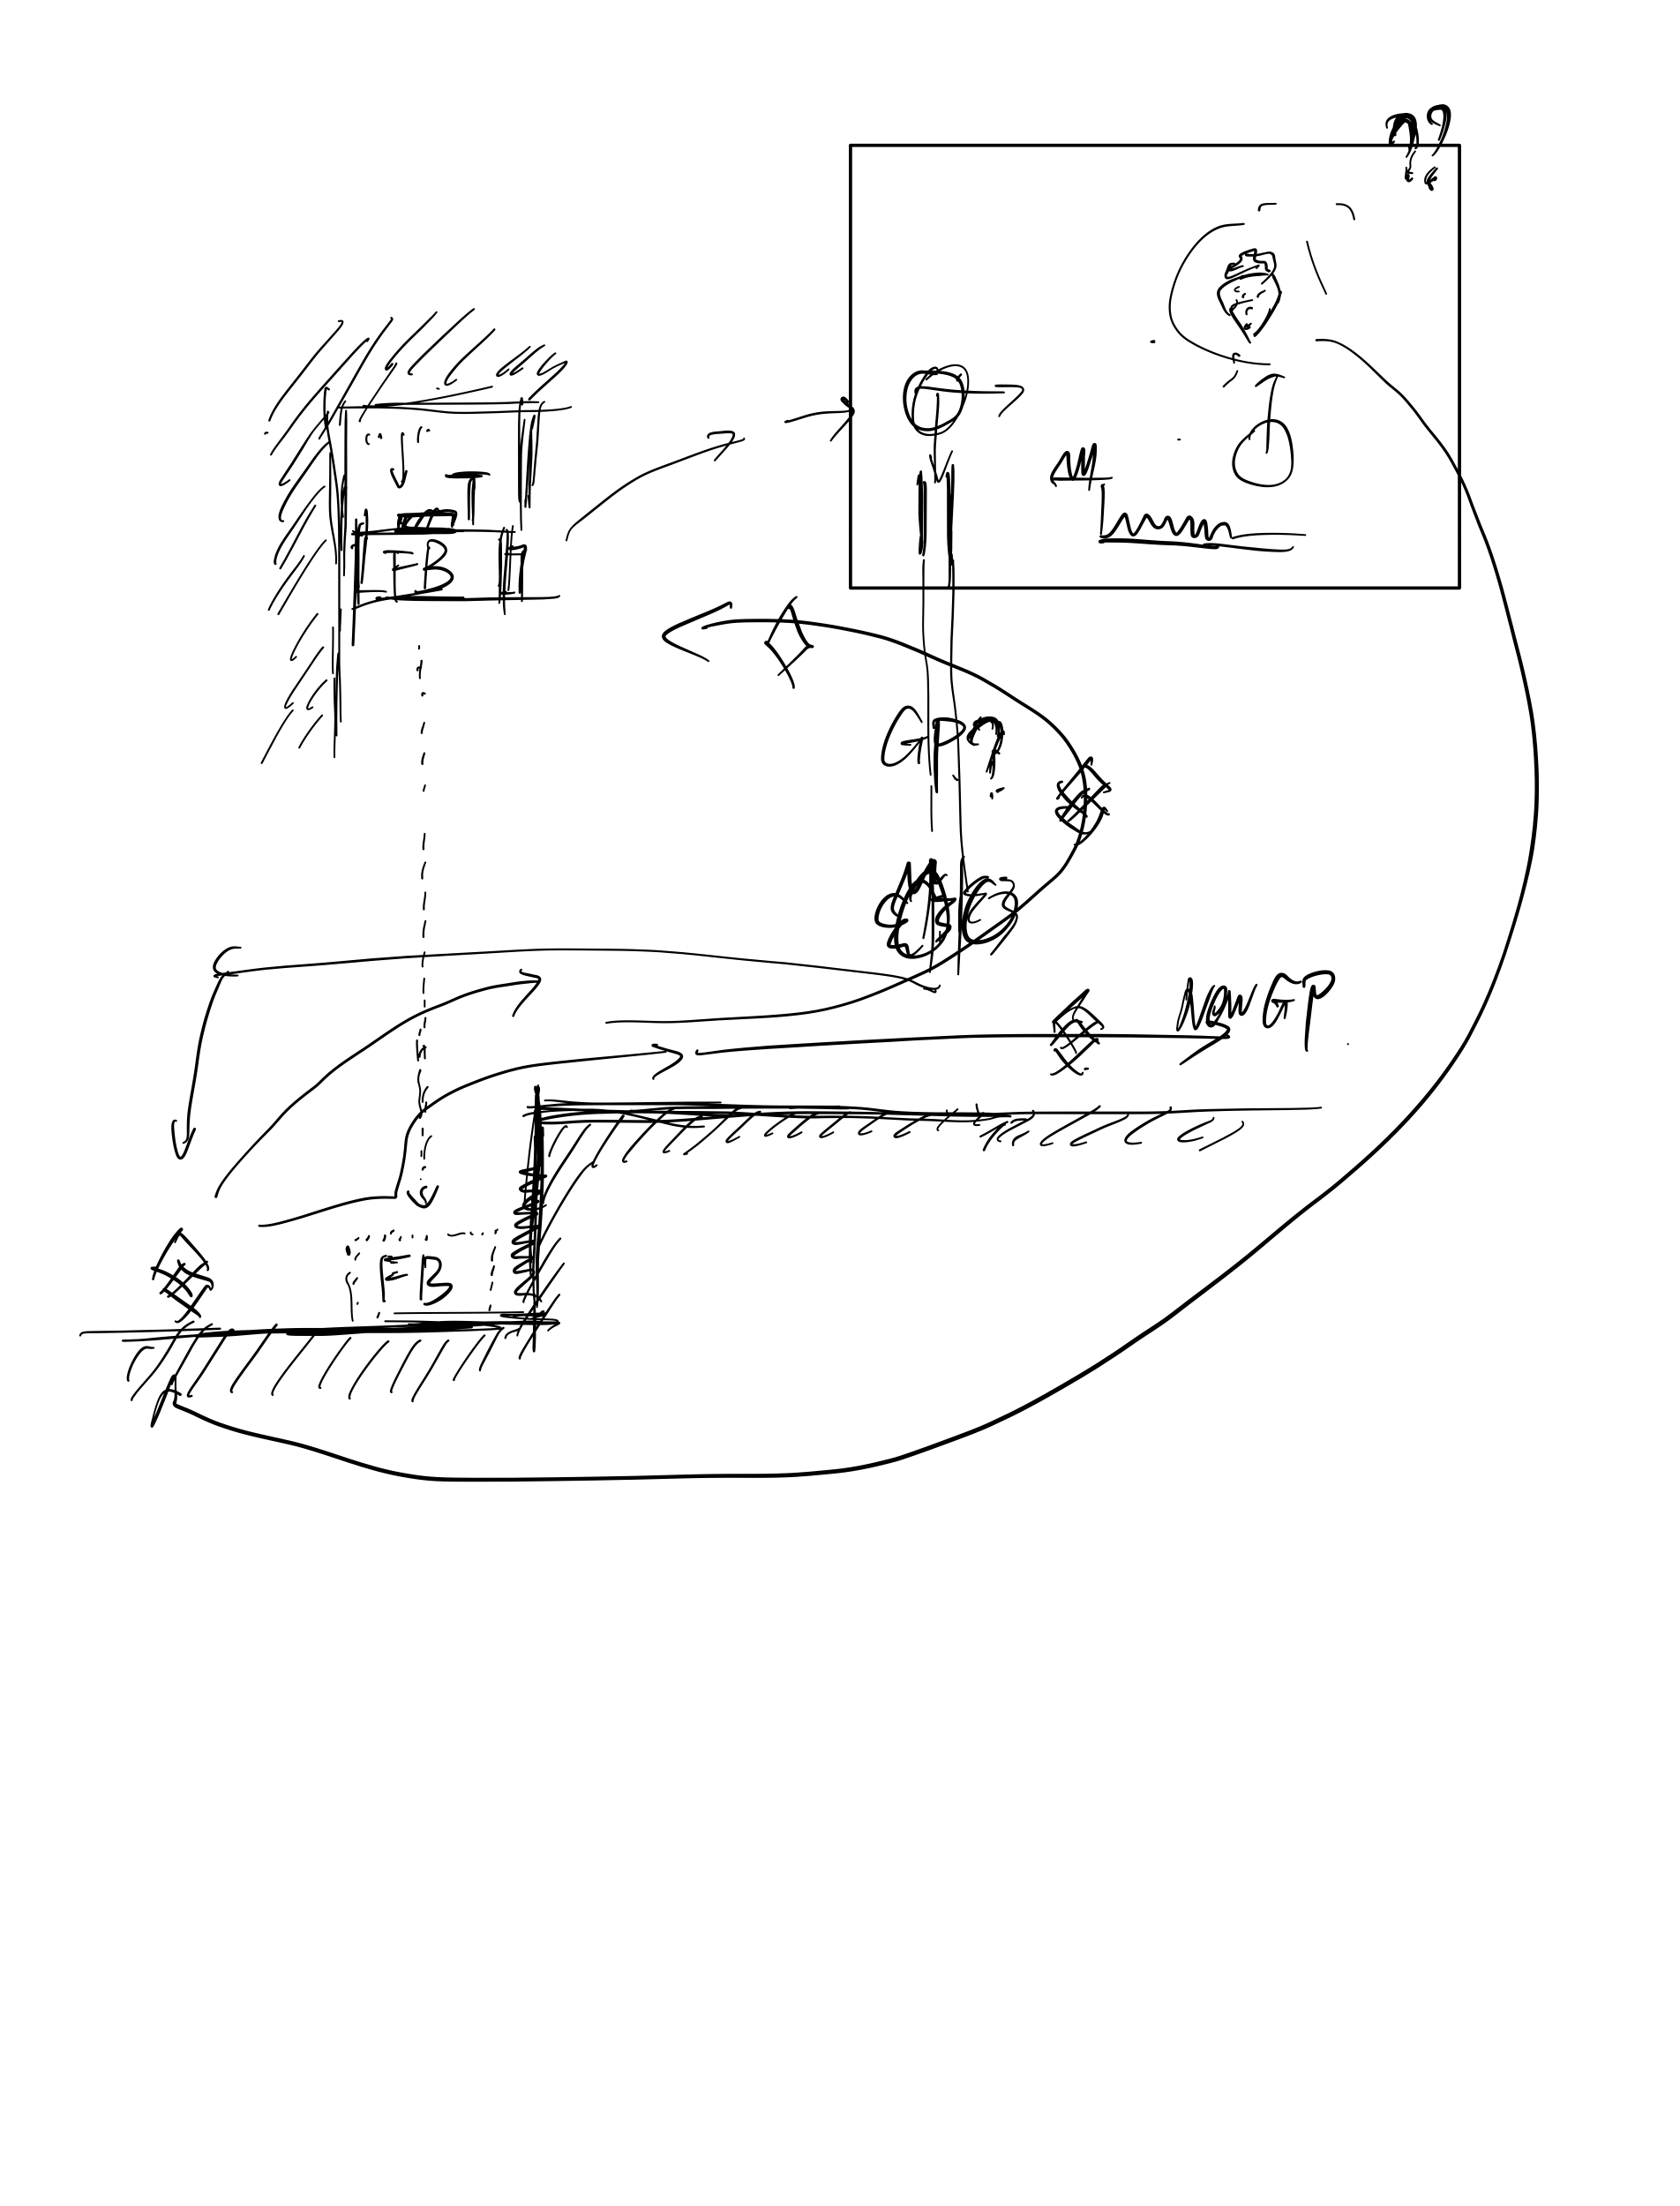 ??
T
FB
GP?
New GP
FB